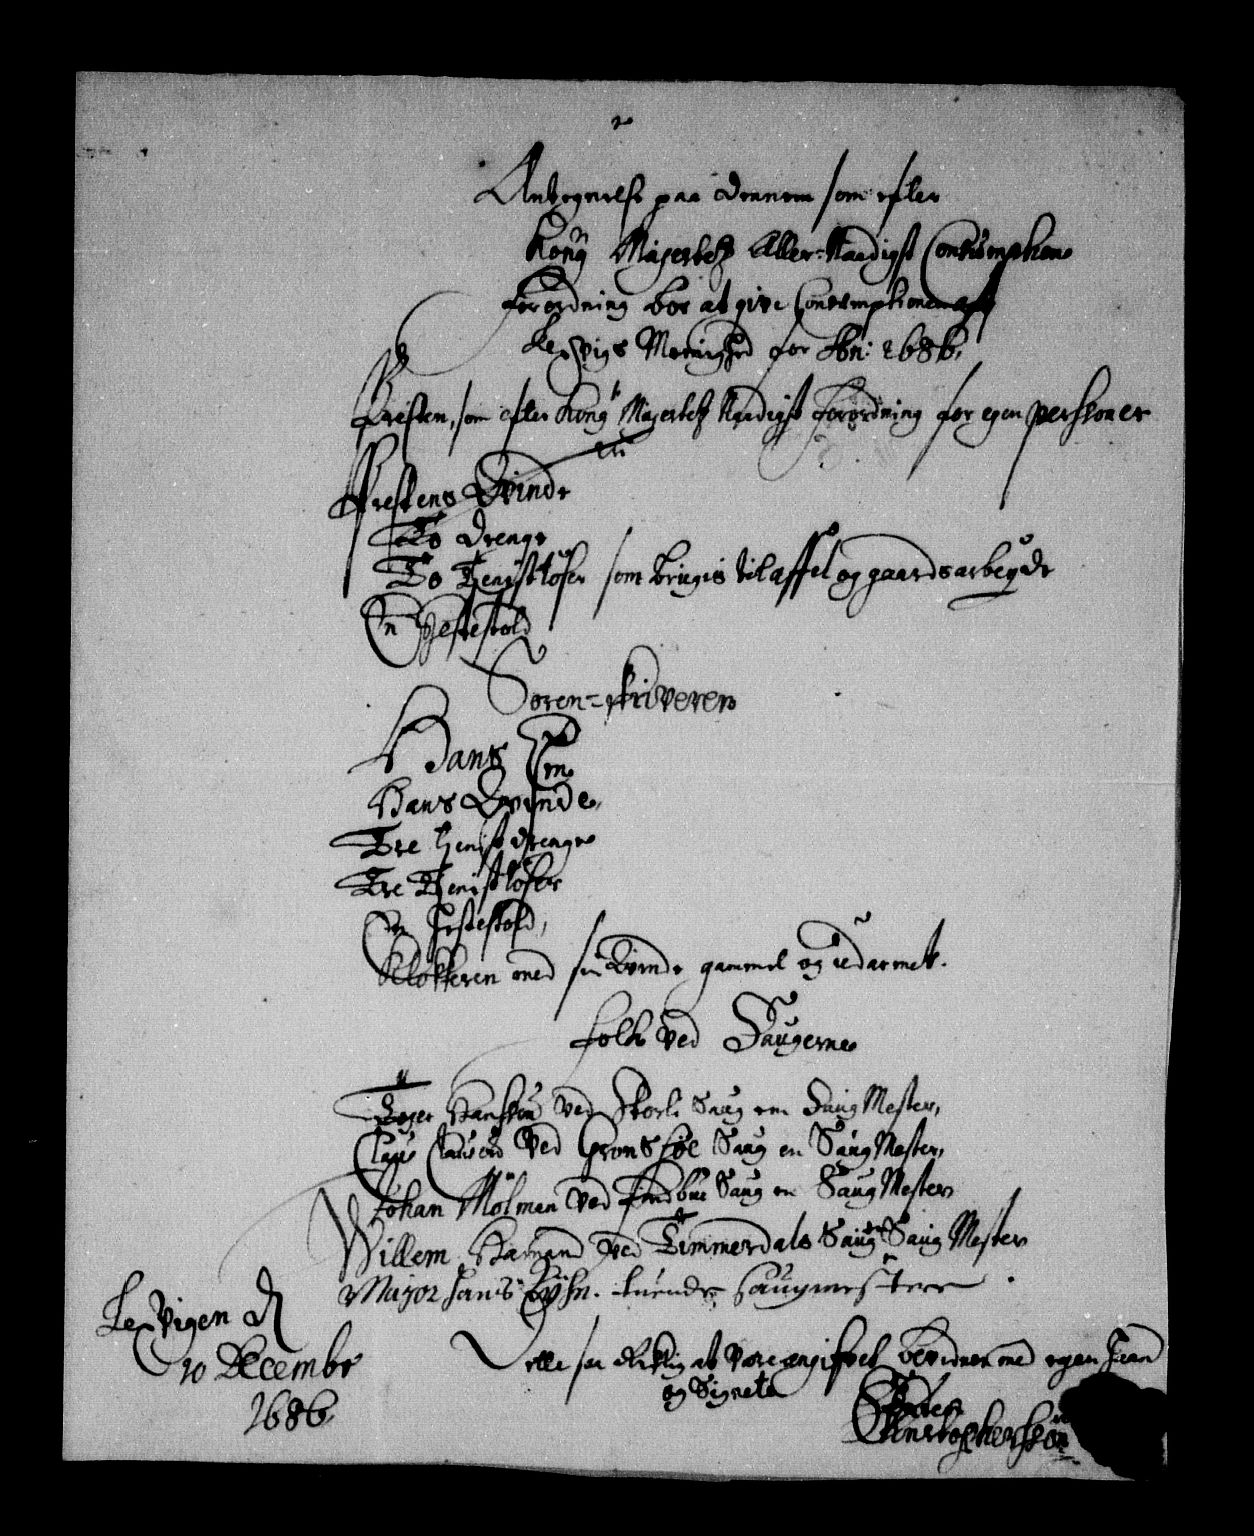 Antegnelse paa dennem som efter
Kong Mayestets Aller-Naadigst Consumptions
forordning bør at give Consumptionen aff
Levigs Menighed for Ao: 1686,
Presten, som efter Kong Mayestets Naadigst forordning for egen persioner
Prestens Qvinde
To drenge
To Thenisttøser som brugis til affel og gaards arbeyde
En Hestestold
Soren-skriveren
Hans
Hans Qvinde,
Tre Thenist drenge
Tre Thenisttøser
En Hestestold,
Klokkeren med sin Qvinde gammel og uedarmet.
folk ved Saugerne
Hansen ved Saug een Saug Mester,
Claus Clausen ved Saug en Saug Mester,
Johan Mölman ved Saug en Saug Mester
Willem ved Timmerdals Saug Saug Mester
Major tuende Saugmestere
Levigen d
10 Decembr
1686
Dette saa Riktig at vere angiffvet bevidner med egen Haand
og Signete
Peder
Christophersøn